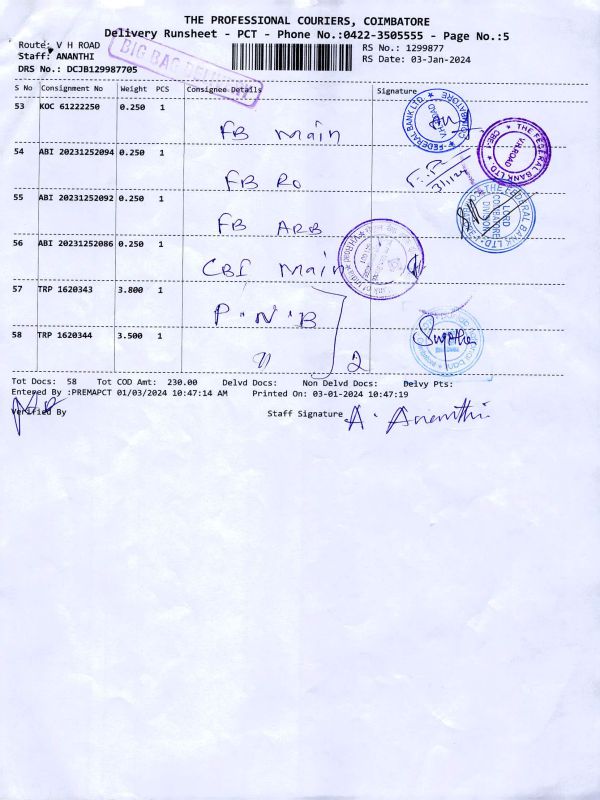 THE PROFESSIONAL COURIERS, COIMBATORE
Delivery Runsheet - PCT - Phone No.:0422-3505555 - Page No.:5
Route: V H ROAD
RS No.: 1299877
Staff: ANANTHI
RS Date: 03-Jan-2024
DRS No.: DCJB129987705
BIG BAG DELIVERY
S No Consignment No Weight PCS Consignee Details Signature
53 KOC 61222250 0.250 1 FB Main
FEDERAL BANK LTD. COIMBATORE V.H.ROAD
54 ABI 20231252094 0.250 1 FB RO
THE FEDERAL BANK LTD. CBE. V.H.ROAD
3/1/24
55 ABI 20231252092 0.250 1 FB ARB
THE FEDERAL BANK LTD. LCRD COIMBATORE DIVISION
56 ABI 20231252086 0.250 1 CBI Main
57 TRP 1620343 3.800 1 P.N.B
58 TRP 1620344 3.500 1 " 2
Tot Docs: 58 Tot COD Amt: 230.00 Delvd Docs: Non Delvd Docs: Delvy Pts:
Entered By :PREMAPCT 01/03/2024 10:47:14 AM Printed On: 03-01-2024 10:47:19
Verified By
Staff Signature A. Ananthi